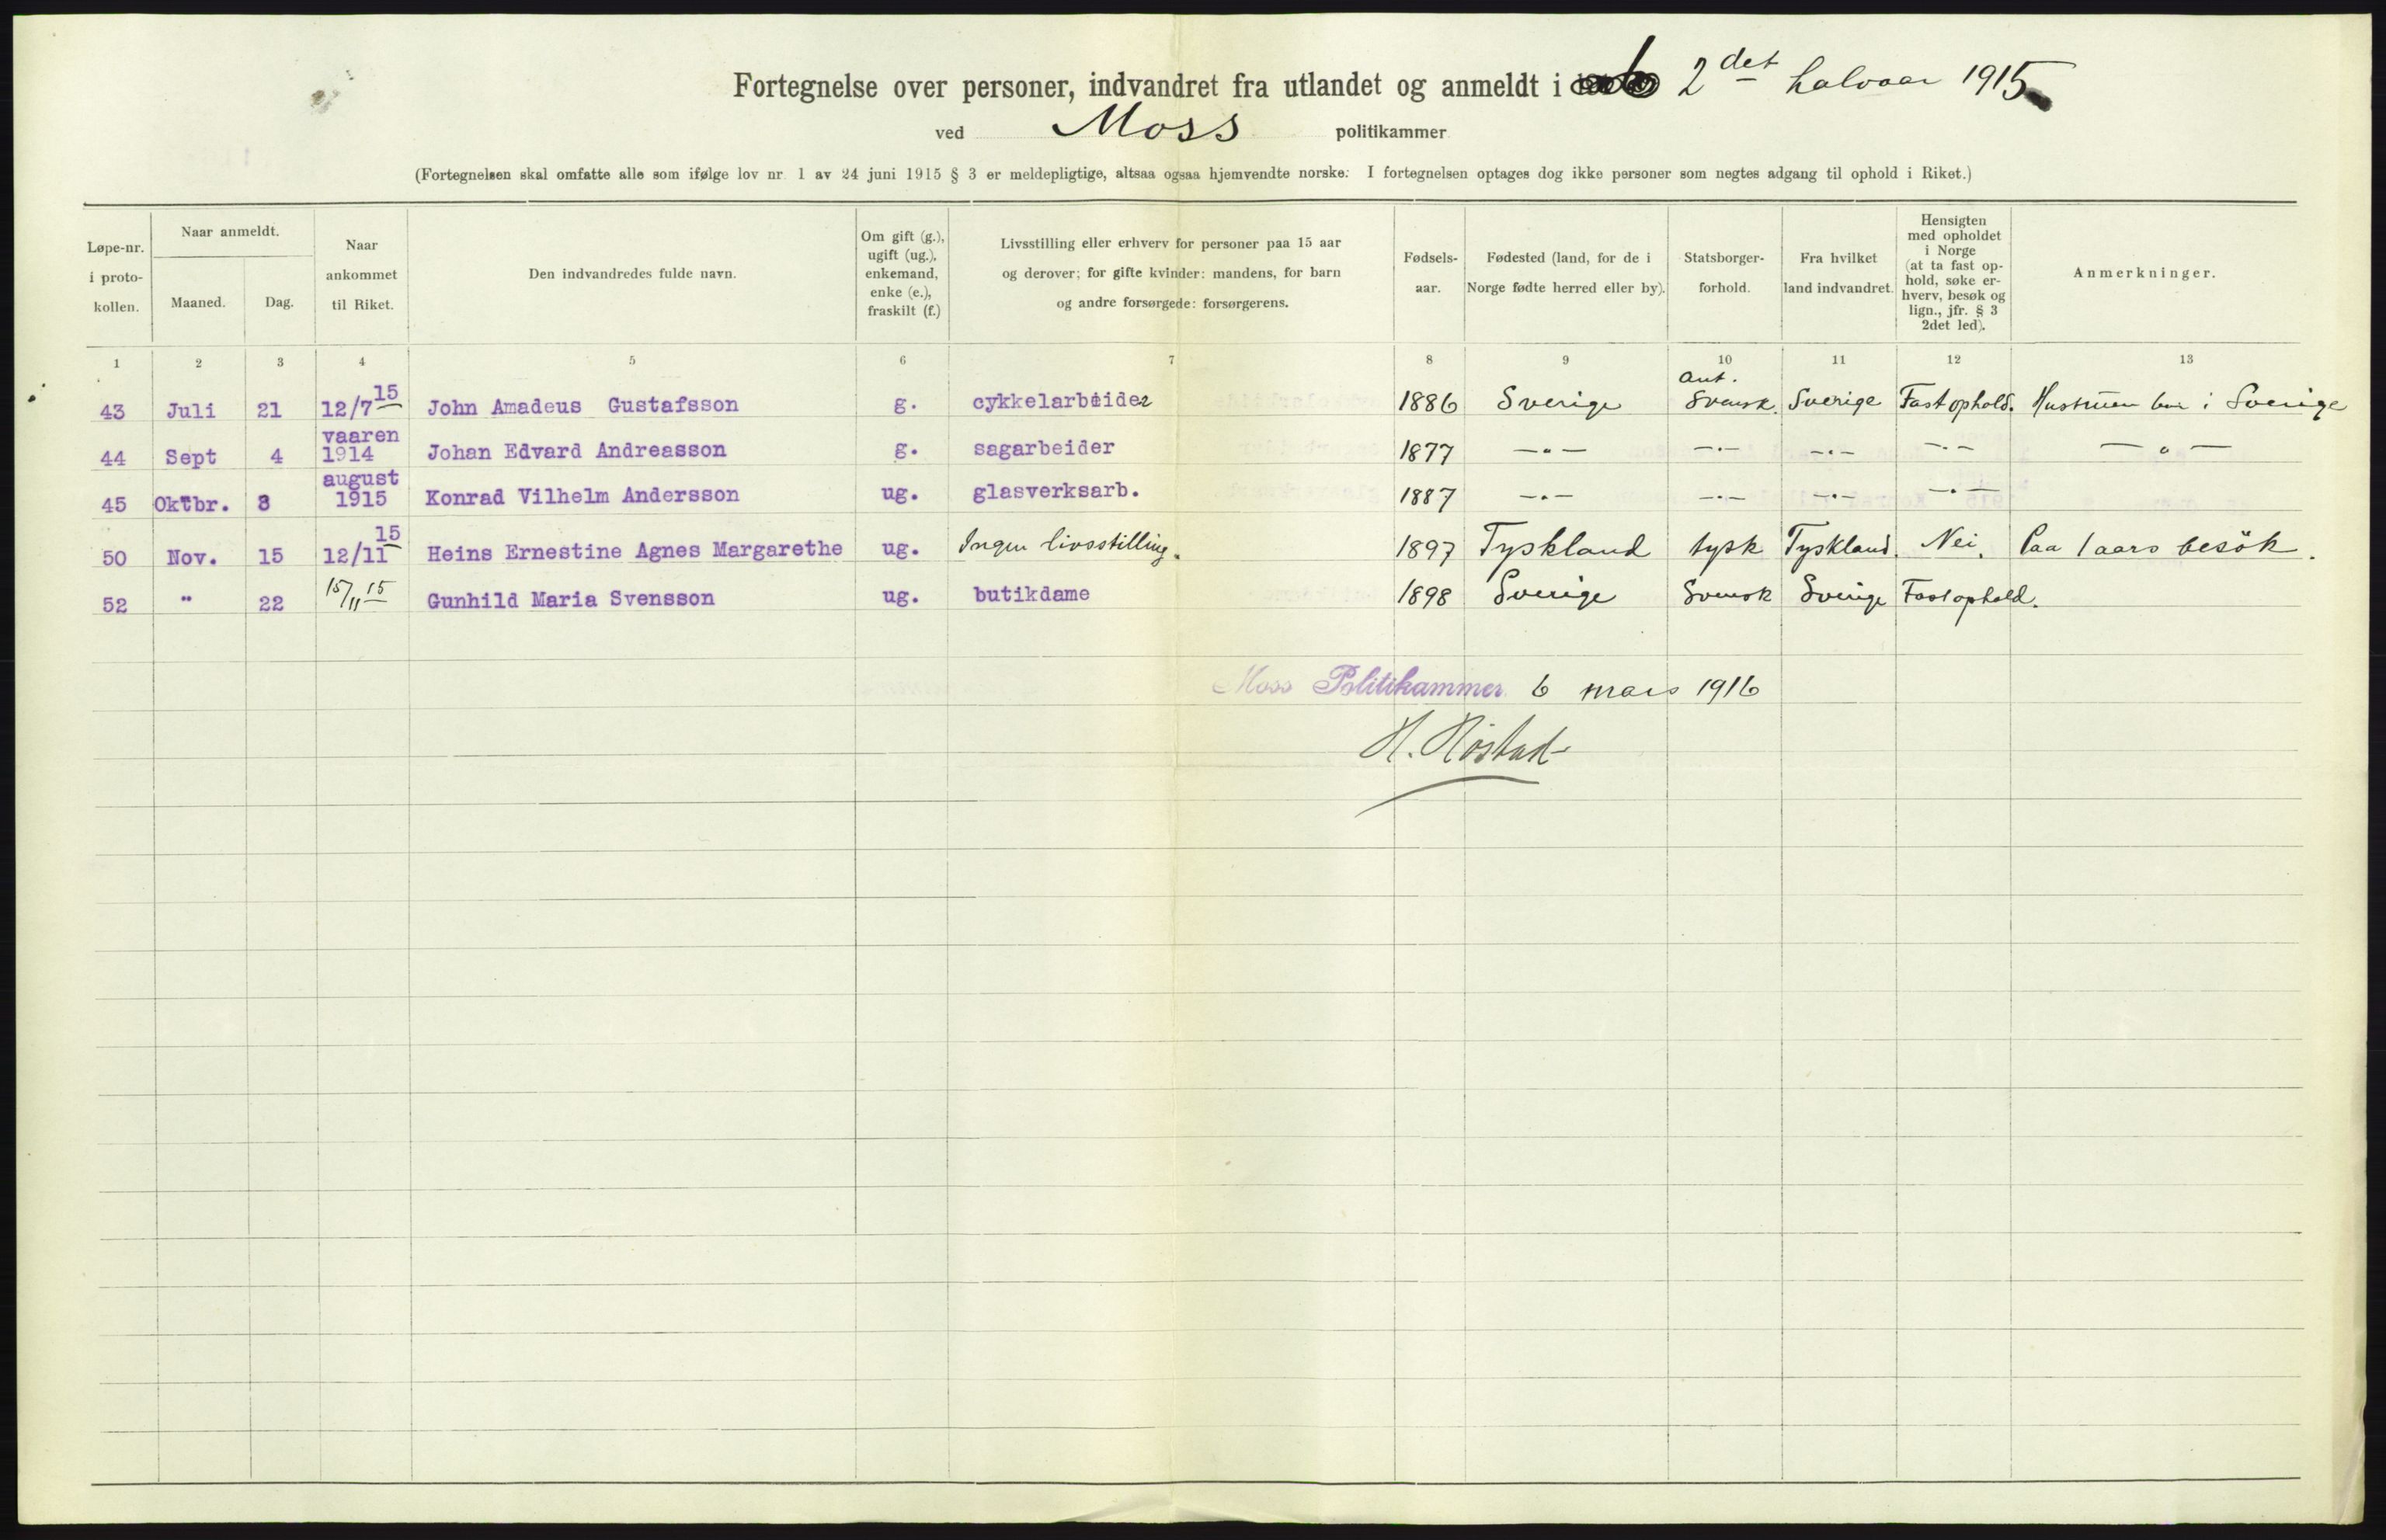 Fortegnelse over personer, indvandret fra utlandet og anmeldt i 2det halvaar 1915
ved Moss politikammer
(Fortegnelsen skal omfatte alle som ifølge lov nr. 1 av 24 juni 1915 § 3 er meldepligtige, altsaa ogsaa hjemvendte norske. I fortegnelsen optages dog ikke personer som negtes adgang til ophold i Riket.)
Løpe-nr. i proto-kollen. Naar anmeldt. Maaned. Dag. Naar ankommet til Riket. Den indvandredes fulde navn. Om gift (g.), ugift (ug.), enkemand, enke (e.), fraskilt (f.) Livsstilling eller erhverv for personer paa 15 aar og derover; for gifte kvinder: mandens, for barn og andre forsørgede: forsørgerens. Fødsels-aar. Fødested (land, for de i Norge fødte herred eller by). Statsborger-forhold. Fra hvilket land indvandret. Hensigten med opholdet i Norge (at ta fast op-hold, søke er-hverv, besøk og lign., jfr. § 3 2det led). Anmerkninger.
1 2 3 4 5 6 7 8 9 10 11 12 13
43 Juli 21 12/7 15 John Amadeus Gustafsson g. cykkelarbeider 1886 Sverige Ant. Svensk. Sverige Fast ophold. Hustruen bor i Sverige
44 Sept 4 vaaren 1914 Johan Edvard Andreasson g. sagarbeider 1877 —"— —"— —"— —"— —"—
45 Oktbr. 3 august 1915 Konrad Vilhelm Andersson ug. glasverksarb. 1887 —"— —"— —"— —"—
50 Nov. 15 12/11 15 Heins Ernestine Agnes Margarethe ug. Ingen livsstilling. 1897 Tyskland tysk Tyskland. Nei. Paa 1 aars besök.
52 " 22 15/11 15 Gunhild Maria Svensson ug. butikdame 1898 Sverige Svensk Sverige Fast ophold.
Moss Politikammer 6 mars 1916
H. Höstad